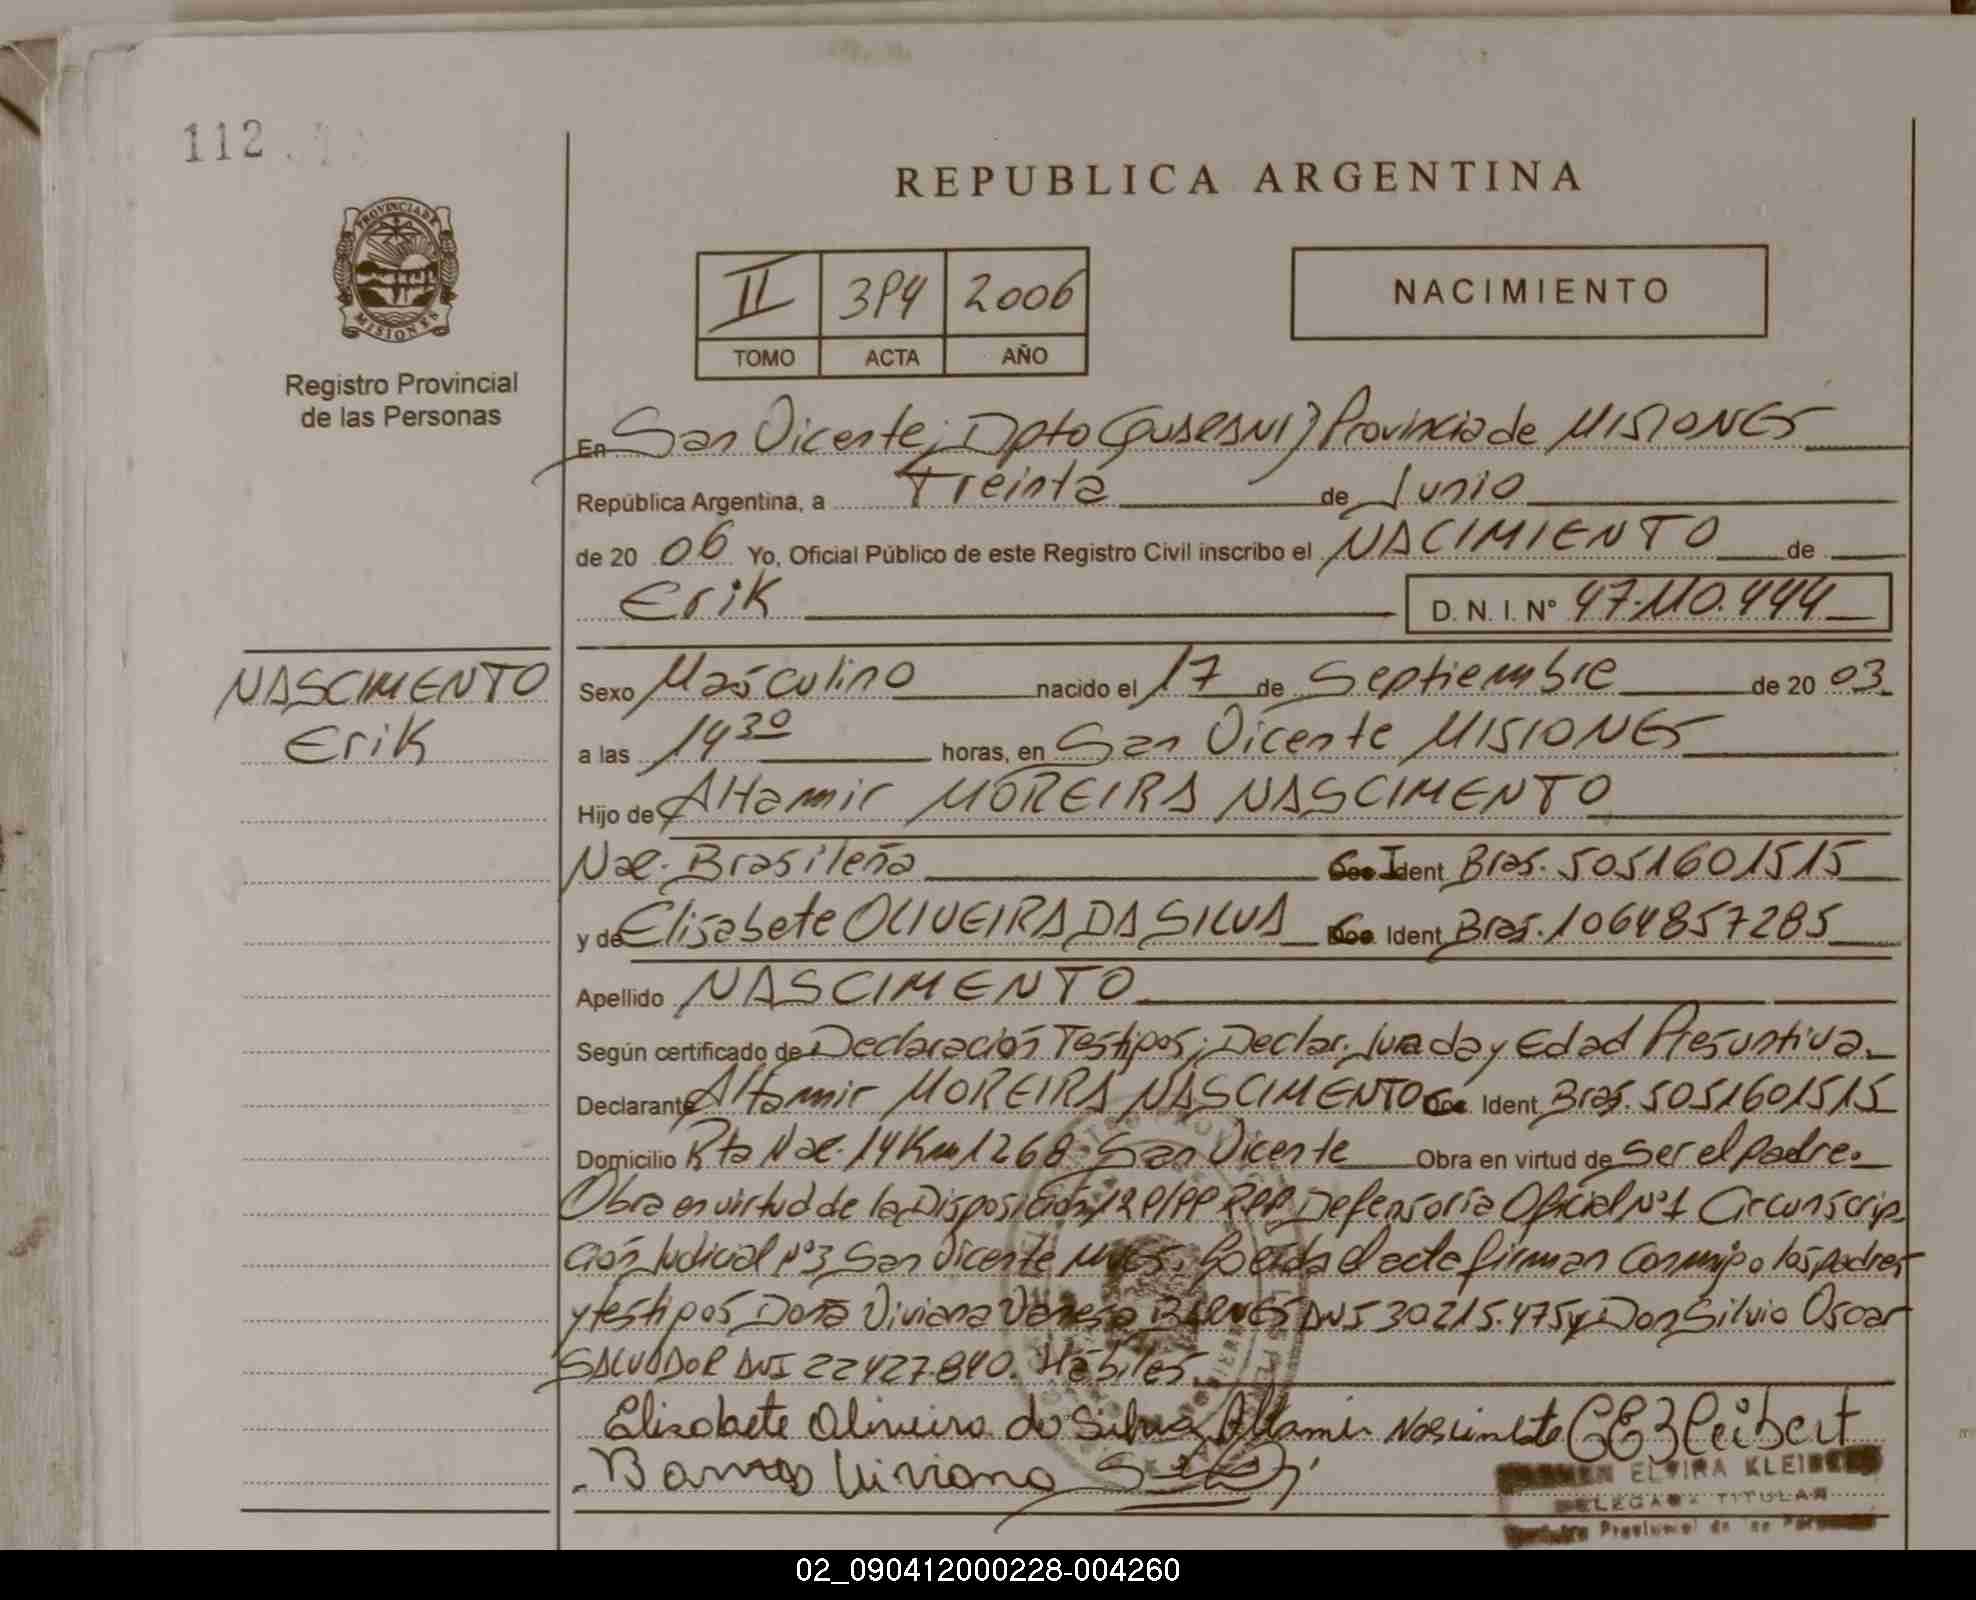 112
REPUBLICA ARGENTINA
PROVINCIA DE
MISIONES
Registro Provincial
de las Personas
II 394 2006
TOMO ACTA AÑO
NACIMIENTO
En San Vicente; Dpto Guaraní; Provincia de MISIONES
República Argentina, a Treinta de Junio
de 20 06 Yo, Oficial Público de este Registro Civil inscribo el NACIMIENTO de
Erik D. N. I. N° 47.110.444
NASCIMENTO
Erik
Sexo Masculino nacido el 17 de Septiembre de 20 03
a las 14 30 horas, en San Vicente MISIONES
Hijo de Altamir MOREIRA NASCIMENTO
Nac. Brasileña Ident Bras. 5051601515
y de Elisabete OLIVEIRA DA SILVA Doc. Ident Bras. 1064857285
Apellido NASCIMENTO
Según certificado de Declaración Testigos; Declar. Jurada y Edad Presuntiva.
Declarante Altamir MOREIRA NASCIMENTO Doc. Ident Bras. 5051601515
Domicilio Rta Nac. 14 Km 1268 San Vicente Obra en virtud de ser el padre.
Obra en virtud de la Disposición Defensoría Oficial Nº1 Circunscrip-
ción Judicial Nº3 San Vicente Mnes. Leída el acta firman conmigo los padres
y testigos Doña Viviana Vanesa DNI 30215.475 y Don Silvio Oscar
SALVADOR DNI 22427.840. Hábiles.
Elizabete Oliveira da Silva Altamir Nascimento CEKleibert
Viviana
CARMEN ELVIRA KLEIBERT
DELEGADA TITULAR
Registro Provincial de las Personas
02_090412000228-004260